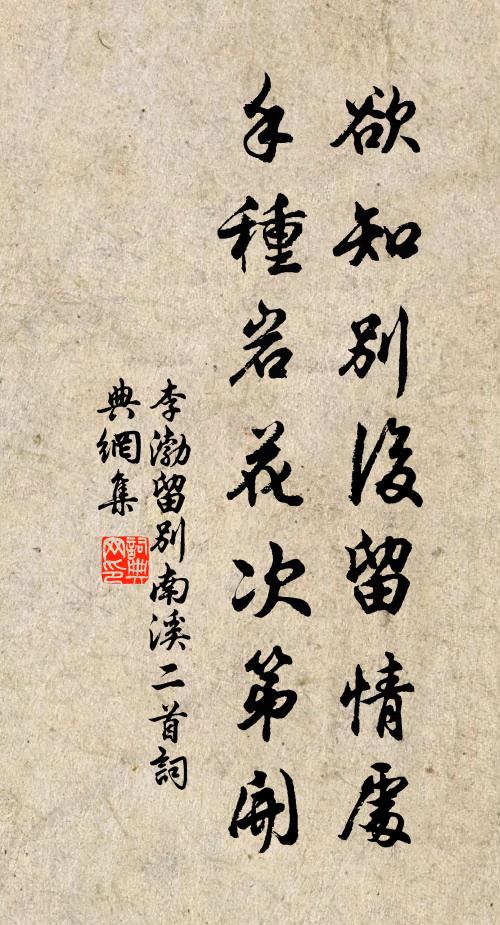 欲知別後留情處
手種岩花次第開
李渤留別南溪二首詞
典網集
詞典
网印